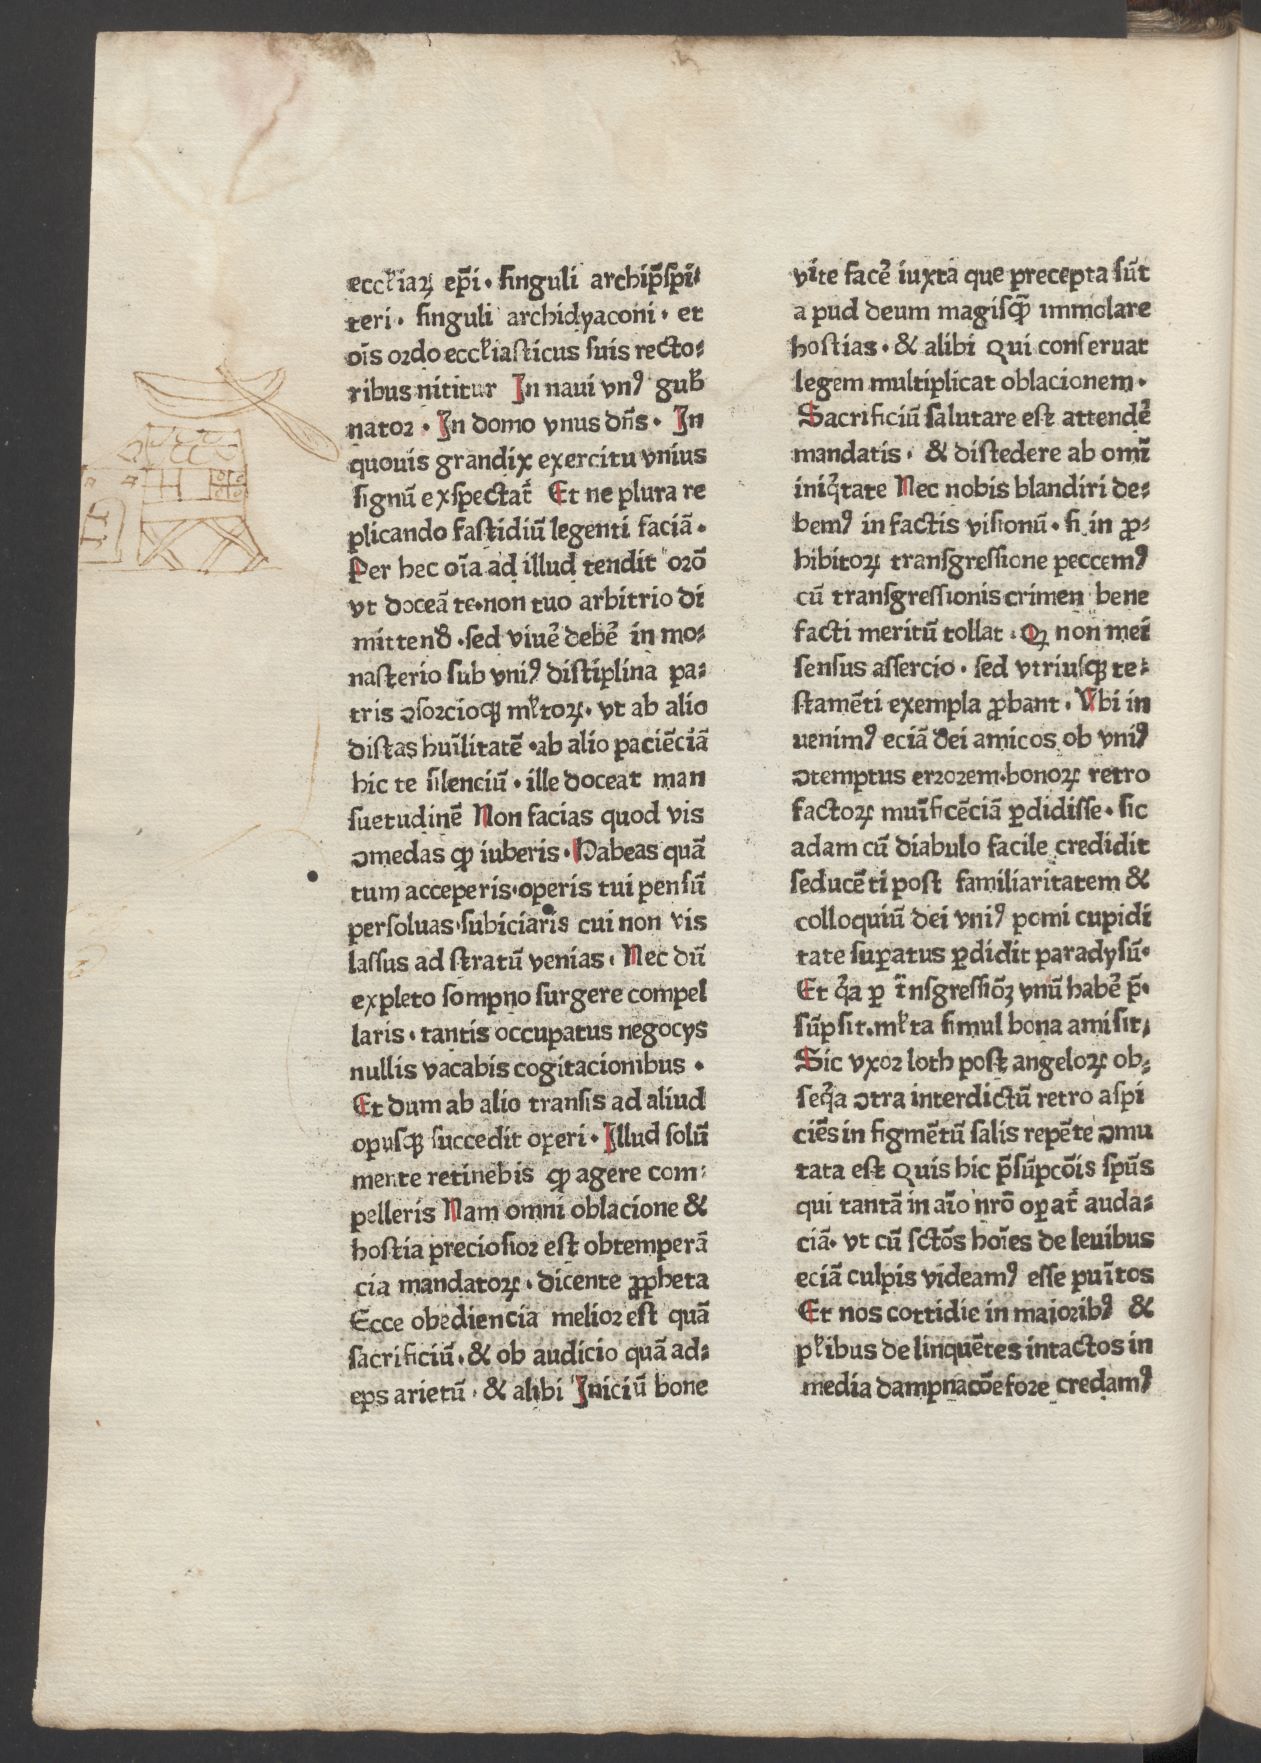 eccĺiaꝝ ep̄i · singuli archip̄spi-
teri · singuli archidyaconi · et
oīs ordo eccĺiasticus suis recto-
ribus nititur In naui vnꝰ gub̄
nator · In domo vnus dn̄s · In
quouis grandix exercitu vnius
signū exspectat᷑ Et ne plura re
plicando fastidiū legenti faciā ·
Per hec oīa ad illud tendit orō
vt doceā te · non tuo arbitrio di
mittend̄ · sed viuē debē in mo-
nasterio sub vniꝰ distiplina pa-
tris ꝯsorcioqꝫ mĺtoꝝ · vt ab alio
distas huīlitatē · ab alio paciēciā
hic te silenciū · ille doceat man
suetudinē Non facias quod vis
ꝯmedas qꝓ iuberis · Habeas quā
tum acceperis · operis tui pensū
persoluas · subiciaris cui non vis
lassus ad stratū venias · Nec dū
expleto sompno surgere compel
laris · tantis occupatus negocys
nullis vacabis cogitacionibus ·
Et dum ab alio transis ad aliud
opusqꝫ succedit operi · Illud solū
mente retinebis qꝓ agere com-
pelleris Nam omni oblacione &
hostia preciosior est obtemperā
cia mandatoꝝ · dicente ꝓpheta
Ecce obediencia melior est quā
sacrificiū · & ob audicio quā ad-
eps arietū · & alibi Iniciū bone
vīte facē iuxta que precepta sūt
a pud deum magisqꝫ̄ immolare
hostias · & alibi Qui conseruat
legem multiplicat oblacionem ·
Sacrificiū salutare est attendē
mandatis · & distedere ab omī
iniqᷓtate Nec nobis blandiri de-
bemꝰ in factis visionū · si in ꝓ-
hibitoꝝ transgressione peccemꝰ
cū transgressionis crimen bene
facti meritū tollat · Qꝛ non mei
sensus assercio · sed vtriusqꝫ te-
stamēti exempla ꝓbant · Vbi in
uenimꝰ eciā dei amicos ob vniꝰ
ꝯtemptus errorem · bonoꝝ retro
factoꝝ muīficēciā ꝑdidisse · sic
adam cū diabulo facile credidit
seducēti post familiaritatem &
colloquiū dei vniꝰ pomi cupidi
tate suꝑatus ꝑdidit paradysū ·
Et qᷓa ꝑ trᷓnsgressiōꝫ vnū habē p̄ ·
sūpsit · mĺta simul bona amisit,
Sic vxor loth post angeloꝝ ob-
seqᷓa ꝯtra interdictū retro aspi
ciēs in figmētū salis repēte ꝯmu
tata est Quis hic p̄sūpcōis spūs
qui tantā in aīo nrō oꝑat᷑ auda-
ciā · vt cū sctōs hoīes de leuibus
eciā culpis videamꝰ esse puītos
Et nos cottidie in maioribꝰ &
pĺibus de linquētes intactos in
media dampnacōe fore credamꝰ